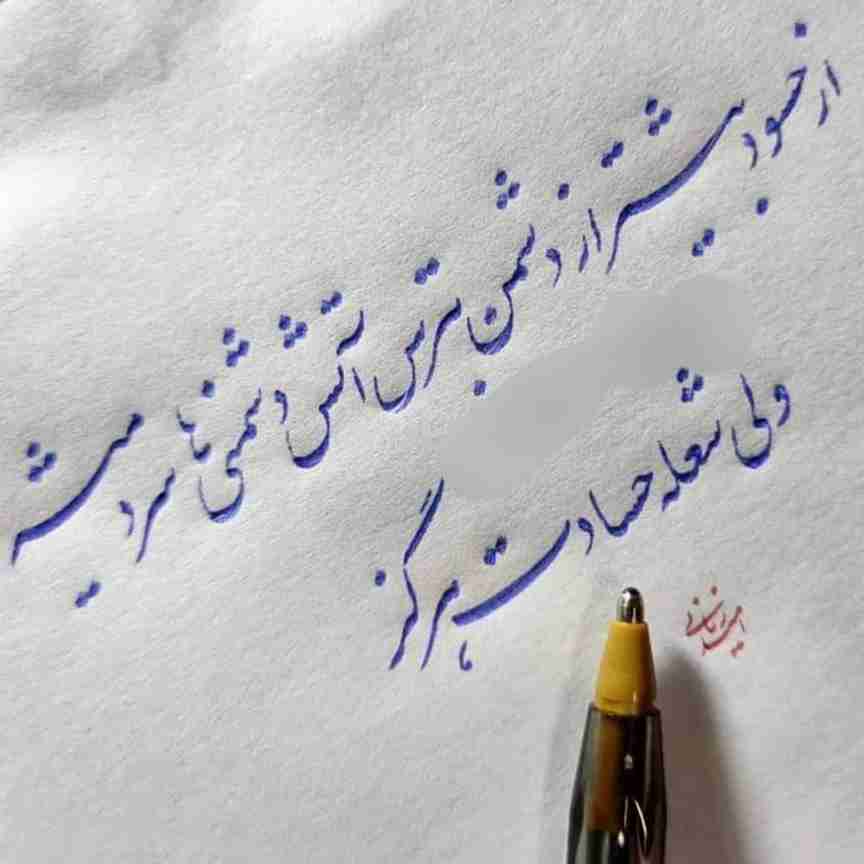 از حسود بیشتر از دشمن بترس آتش دشمنی ها سرد میشه
ولی شعله حسادت هرگز